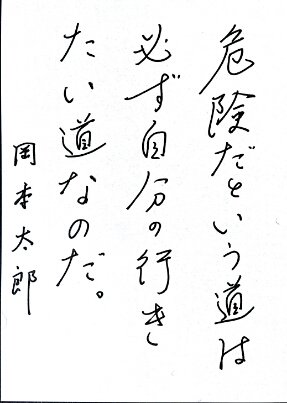 危険だという道は
必ず自分の行き
たい道なのだ。
岡本太郎